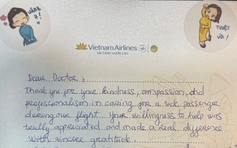 Vietnam Airlines
Dear Doctor,
Thank you for your kindness, compassion, and
professionalism in caring for a sick passenger
during our flight. Your willingness to help was
really appreciated and made a real difference
With sincere gratitude